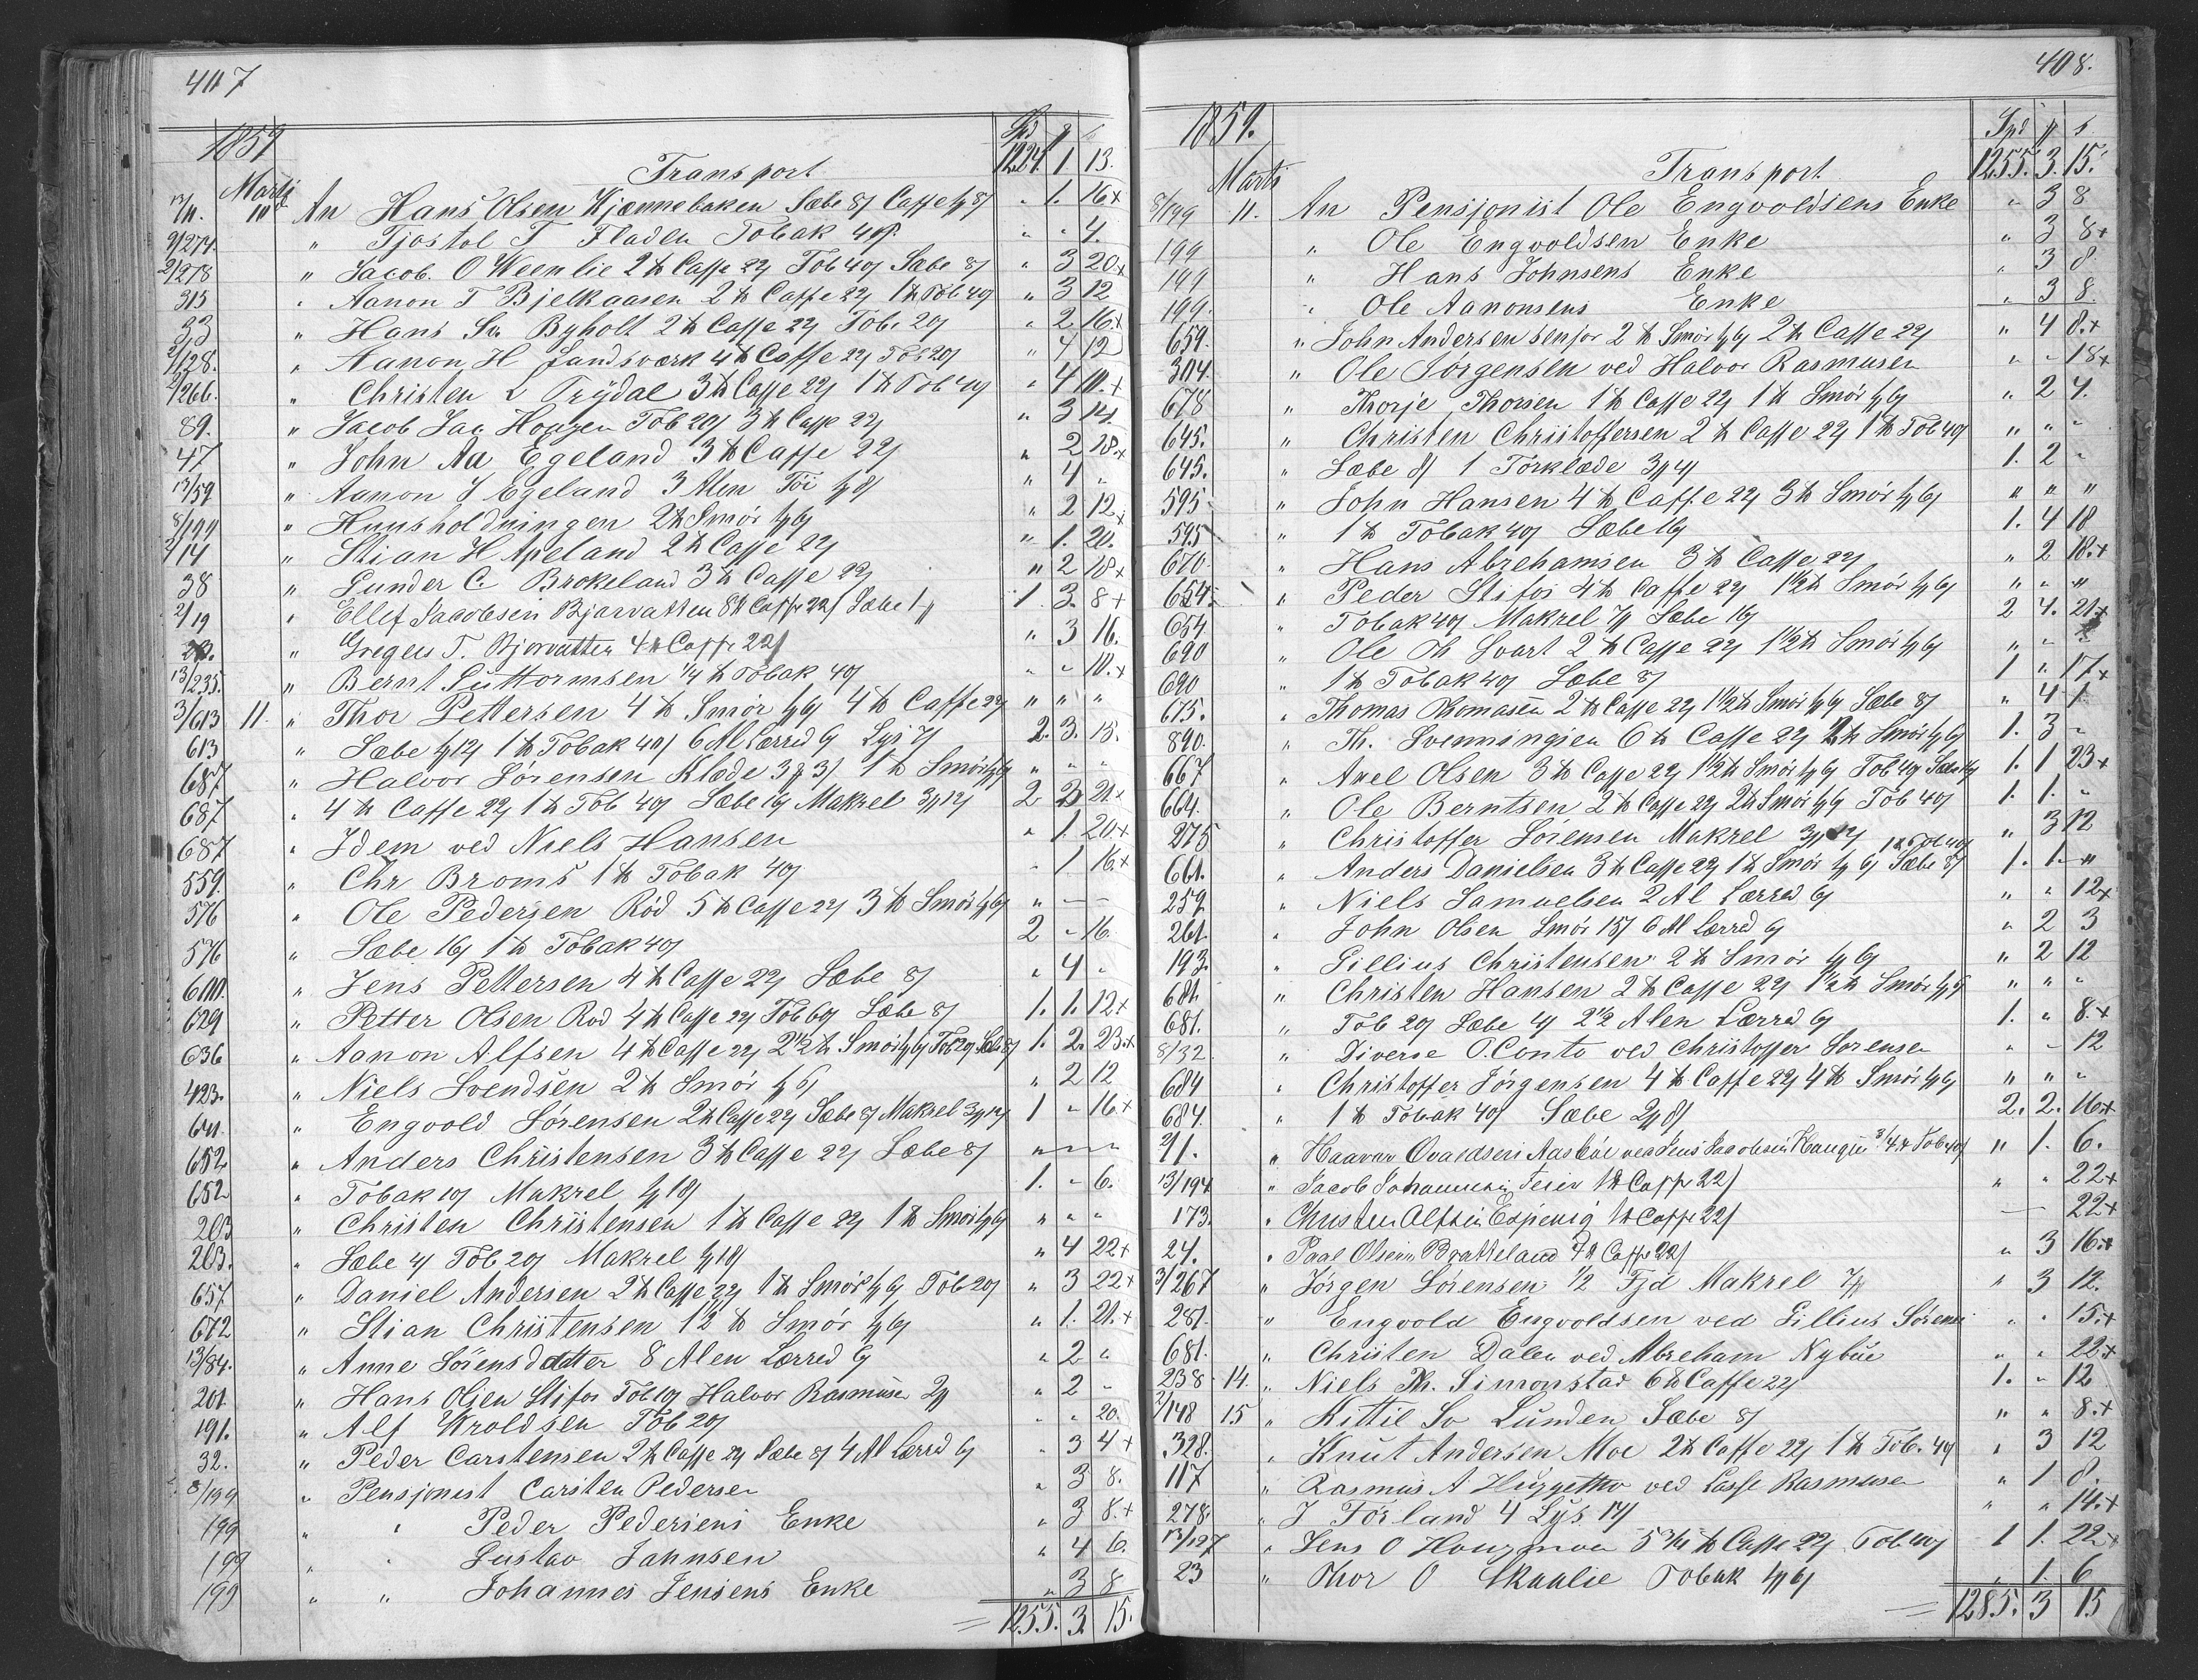 407
1859
Spd
Transport 1224. 1. 13.
Marts
10 An Hans Olsen Kjennebaken Sæbe 8/ Caffe 8/ " 1. 16x
9/274. " Tjostol T Fladen Tobak 40/. " " 4.
2/278 " Jacob O Weenlie 2 ℔ Caffe 22/ Tob 40/ Sæbe 8/ " 3 20x
315 " Aanon T Bjelkaasen 2 ℔ Caffe 22/ 1 ℔ Tob 40/ " 3 12
33 " Hans Byholt 2 ℔ Caffe 22/ Tob. 20/ " 2 16x
2/128. " Aanon H Landsværk 4 ℔ Caffe 22/ Tob 20/ " 4 12
2/266. " Christen L Trydal 3 ℔ Caffe 22/ 1 ℔ Tob 40/ " 4 10.x
89. " Jacob Jac Hougen Tob 20/ 3 ℔ Caffe 22/ " 3 14.
47 " John Aa Egeland 3 ℔ Caffe 22/ " 2 18.x
13/59 " Aanon J Egeland 3 Alen Töi 8/ " 4 "
8/199 " Huusholdningen 2 ℔ Smör 6/ " 2 12x
2/14 " Stian H Apeland 2 ℔ Caffe 22/ " 1. 20.
38 " Gunder C. Brokeland 3 ℔ Caffe 22/ " 2 18x
2/19 " Ellef Jacobsen Bjorvatten 8 ℔ Caffe 22/ Sæbe 1 1. 3. 8+
" Gregers T. Bjorvatten 4 ℔ Caffe 22/ " 3 16.
13/235. " Bernt Guttormsen 1/4 ℔ Tobak 40/ " " 10.x
3/613 11. " Thor Pettersen 4 ℔ Smör 6/ 4 ℔ Caffe 22/ " " "
613 " Sæbe 12/ 1 ℔ Tobak 40/ 6 Al Lærred 9/ Lys 7/ 2. 3. 15.
687 " Halvor Sörensen Klæde 3/ 1 ℔ Smör 6/ " " "
687 " 4 ℔ Caffe 22/ 1 ℔ Tob 40/ Sæbe 16/ Makrel 3 12/ 2 21x
687 " Idem ved Niels Hansen " 1. 20x
559. " Chr Broms 1 ℔ Tobak 40/ " 1 16x
576 " Ole Pedersen Röd 5 ℔ Caffe 22/ 3 ℔ Smör 6/ " — —
576 " Sæbe 16/ 1 ℔ Tobak 40/ 2 " 16.
600. " Jens Pettersen 4 ℔ Caffe 22/ Sæbe 8/ " 4 "
629 " Petter Olsen Röd 4 ℔ Caffe 22/ Tob 60/ Sæbe 8/ 1. 1. 12x
636 " Aanon Alfsen 4 ℔ Caffe 22/ 2 1/2 ℔ Smör 6/ Tob 20/ Sæbe 8/ 1. 2. 23.x
423. " Niels Svendsen 2 ℔ Smör 6/ " 2 12
641. " Engvold Sörensen 2 ℔ Caffe 22/ Sæbe 8/ Makrel 3 12/ 1 " 16.x
652 " Anders Christensen 3 ℔ Caffe 22/ Sæbe 8/ " " "
652 " Tobak 10/ Makrel 18/ 1. " 6.
203 " Christen Christensen 1 ℔ Caffe 22/ 1 ℔ Smör 6/ " " "
203. " Sæbe 4/ Tob 20/ Makrel 18/ " 4 22x
657 " Daniel Andersen 2 ℔ Caffe 22/ 1 ℔ Smör 6/ Tob 20/ " 3 22x
672 " Stian Christensen 1 1/2 ℔ Smör 6/ " 1. 21.x
13/84. " Anne Sörensdatter 8 Alen Lærred 9/ " 2 "
201 " Hans Olsen Stifos Tob 10/ Halvor Rasmusen 2 " 2 "
191. " Alf Wroldsen Tob 20/ " " 20.
32. " Peder Carstensen 2 ℔ Caffe 22/ Sæbe 8/ 4 Al Lærred 9/ " 3 4x
8/199 " Pensjonist Carsten Pedersen " 3 8.
199 " " Peder Pedersens Enke " 3 8.x
199 " " Gustav Jahnsen " 4 6.
199 " " Johannes Jensens Enke " 3 8
= 1255. 3. 15.
408.
1859.
Spd
Transport 1255. 3. 15.
Marts
8/199 11. An Pensjonist Ole Engvoldsens Enke " 3 8
199 " Ole Engvoldsen Enke " 3 8x
199 " Hans Johnsens Enke " 3 8
199. " Ole Aanonsens Enke " 3 8.
659. " John Andersen senjor 2 ℔ Smör 6/ 2 ℔ Caffe 22/ " 4 8.x
304. " Ole Jörgensen ved Halvor Rasmusen " " 18x
678 " Thorje Thorsen 1 ℔ Caffe 22/ 1 ℔ Smör 6/ " 2 4.
645. " Christen Christoffersen 2 ℔ Caffe 22/ 1 ℔ Tob 40/ " " "
645. " Sæbe 8/ 1 Törklæde 3 4/ 1. 2 "
595 " John Hansen 4 ℔ Caffe 22/ 3 ℔ Smör 6/ " " "
595 " 1 ℔ Tobak 40/ Sæbe 16/ 1. 4 18
670. " Hans Abrehamsen 3 ℔ Caffe 22/ " 2 18.x
654. " Peder Stifos 4 ℔ Caffe 22/ 1 1/2 ℔ Smör 6/ " " "
654 " Tobak 40/ Makrel 7/ Sæbe 16/ 2 4. 21x
690 " Ole Th Svart 2 ℔ Caffe 22/ 1 1/2 ℔ Smör 6/ " "
690 " 1 ℔ Tobak 40/ Sæbe 8/ 1 " 17x
675. " Thomas Thomasen 2 ℔ Caffe 22/ 1 1/2 ℔ Smör 6/ Sæbe 8/ " 4 1
890. " Th. Svenningsen 6 ℔ Caffe 22/ 2 ℔ Smör 6/ 1. 3 "
667 " Axel Olsen 3 ℔ Caffe 22/ 1 1/2 ℔ Smör 6/ Tob 40/ Sæbe 16/ 1. 1 23x
664. " Ole Berntsen 2 ℔ Caffe 22/ 2 ℔ Smör 6/ Tob 40/ 1. 1. "
275 " Christoffer Sörensen Makrel 3 12/ " 3 12
1 ℔ Tob 40/
661. " Anders Danielsen 3 ℔ Caffe 22/ 1 ℔ Smör 6/ Sæbe 8/ 1. 1. "
259 " Niels Samuelsen 2 Al Lærred 9/ " " 12x
261. " John Olsen Smör 15/ 6 Al Lærred 9/ " 2 3
193. " Gillius Christensen 2 ℔ Smör 6/ " 2 12
681. " Christen Hansen 2 ℔ Caffe 22/ 1 1/2 ℔ Smör 6/ " " "
681. " Tob 20/ Sæbe 4/ 2 1/2 Alen Lærred 9/ 1. " 8.x
8/32 " Diverse O.Conto ved Christoffer Sörensen " " 12
684 " Christoffer Jörgensen 4 ℔ Caffe 22/ 4 ℔ Smör 6/ " " "
684. " 1 ℔ Tobak 40/ Sæbe 2 8/ 2. 2. 16x
2/1. " Haavor Ovaldsen Aasböe ved Jens Jacobsen Haugen 3/4 ℔ Tob 40/ " 1. 6.
13/194 " Jacob Johannesen Feier 1 ℔ Caffe 22/ " " 22x
173. " Christen Alfsen Espenig 1 ℔ Caffe 22/ — 22x
24. " Paal Olsen Bratteland 4 ℔ Caffe 22/ " 3 16.x
3/267 " Jörgen Sörensen 1/2 Fjd Makrel 7/ " 3 12.
281. " Engvold Engvoldsen ved Gillius Sörensen " " 15.x
681. " Christen Dalen ved Abreham Nybue " " 22x
238 14. " Niels Th. Simonstad 6 ℔ Caffe 22/ 1. " 12
2/148 15 " Kittil Sv Lunden Sæbe 8/ " " 8.x
328. " Knut Andersen Moe 2 ℔ Caffe 22/ 1 ℔ Tob. 40/ " 3 12
117 " Rasmus A ved Lasse Rasmusen " 1 8.
278. " J Förland 4 Lys 14/ " " 14.x
13/127 " Jens O Hougmoen 5 ℔ Caffe 22/ Tob 40/ 1 1. 22x
23 " Thor O Skaalie Tobak 6/ " 1. 6
= 1285. 3 15